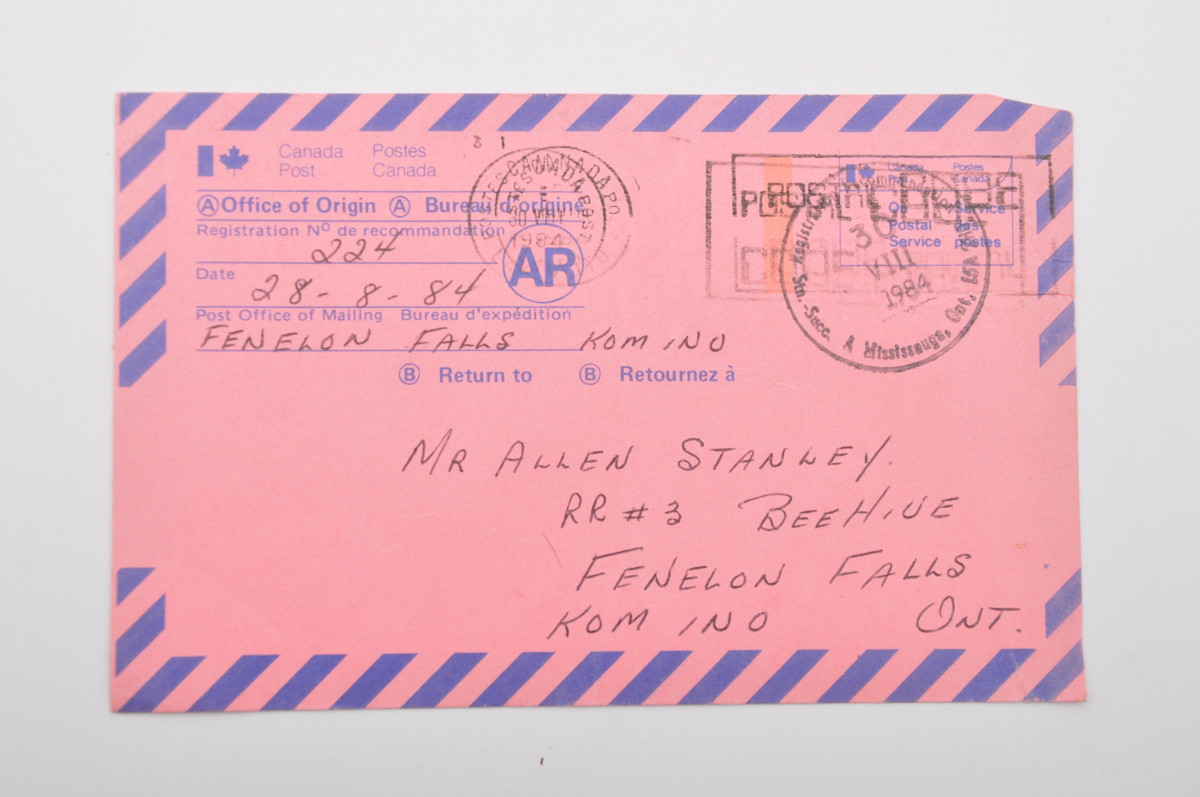 3 1
Canada Post Postes Canada
Ⓐ Office of Origin Ⓐ Bureau d'origine
Registration Nº de recommandation
224
Date
28-8-84
AR
Post Office of Mailing Bureau d'expédition
FENELON FALLS KOM 1NO
Ⓑ Return to Ⓑ Retournez à
CANADA
1984
Canada Postes
Canada
On Service
Postal des
Service postes
POSTAL CODE
30
VIII
1984
Succ. A Mississauga, Ont. L5A
MR ALLEN STANLEY.
RR #3 BEEHIVE
FENELON FALLS
KOM 1NO ONT.